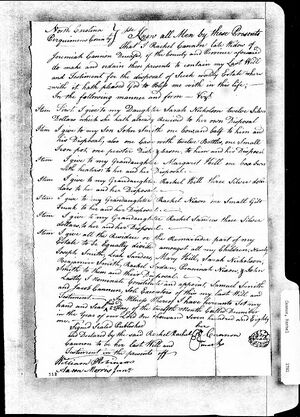 North Carolina
Perquimans County } Know all Men by these Presents
That I Rachel Cannon late Widow of
Jeremiah Cannon Deceased of the County and Province aforesaid
do make and ordain these presents to contain my Last Will
and Testament for the disposal of Such worldly Estate where
with it hath pleased God to help me with in this life;
In the following manner and form Viz
Item First I give to my Daughter Sarah Nicholson twelve Silver
Dollars which she hath already received to her own Disposal
Item I give to my Son John Smith one hound bell to him and
his Disposal; also one Case with twelve Bottles, one Small
Iron pot, one pewter Dish & bason, to him and his Disposal
Item I give to my Grandaughter Margaret Hill one box Iron
with heaters to her and her Disposal
Item I give to my Grandaughter Rachel Hill three Silver dol-
lars to her and her Disposal
Item I give to my Grandaughter Rachel Nixon one Small Gilt
Trunk to her and her Disposal
Item I give to my Grandaughter Rachel Sanders three Silver
dollars, to her and her Disposal
Item I give all the Residue or the Remainder part of my
Estate to be Equally divided amongst all my Children,
Joseph Smith, Leah Sanders, Mary Hill, Sarah Nicholson,
Benjamin Smith, Rachel Jordan, Nixon, & John
Smith to them and their Disposal
Item I nominate Constitute and appoint, Samuel Smith
and Jacob Cannon, sole Executors of this my last Will and
Testament In Witness Whereof I have hereunto Set my
hand and Seal, this day of the twelfth Month Called December
in the Year of our Lord one thousand Seven hundred and Eighty
Signed Sealed Published
and Declared by the said Rachel
Cannon to be her last Will and
Testament in the presents off
Rachel R Cannon
her
mark
William Robinson
Aaron Morris Junr
Cannon, Rachel
1780